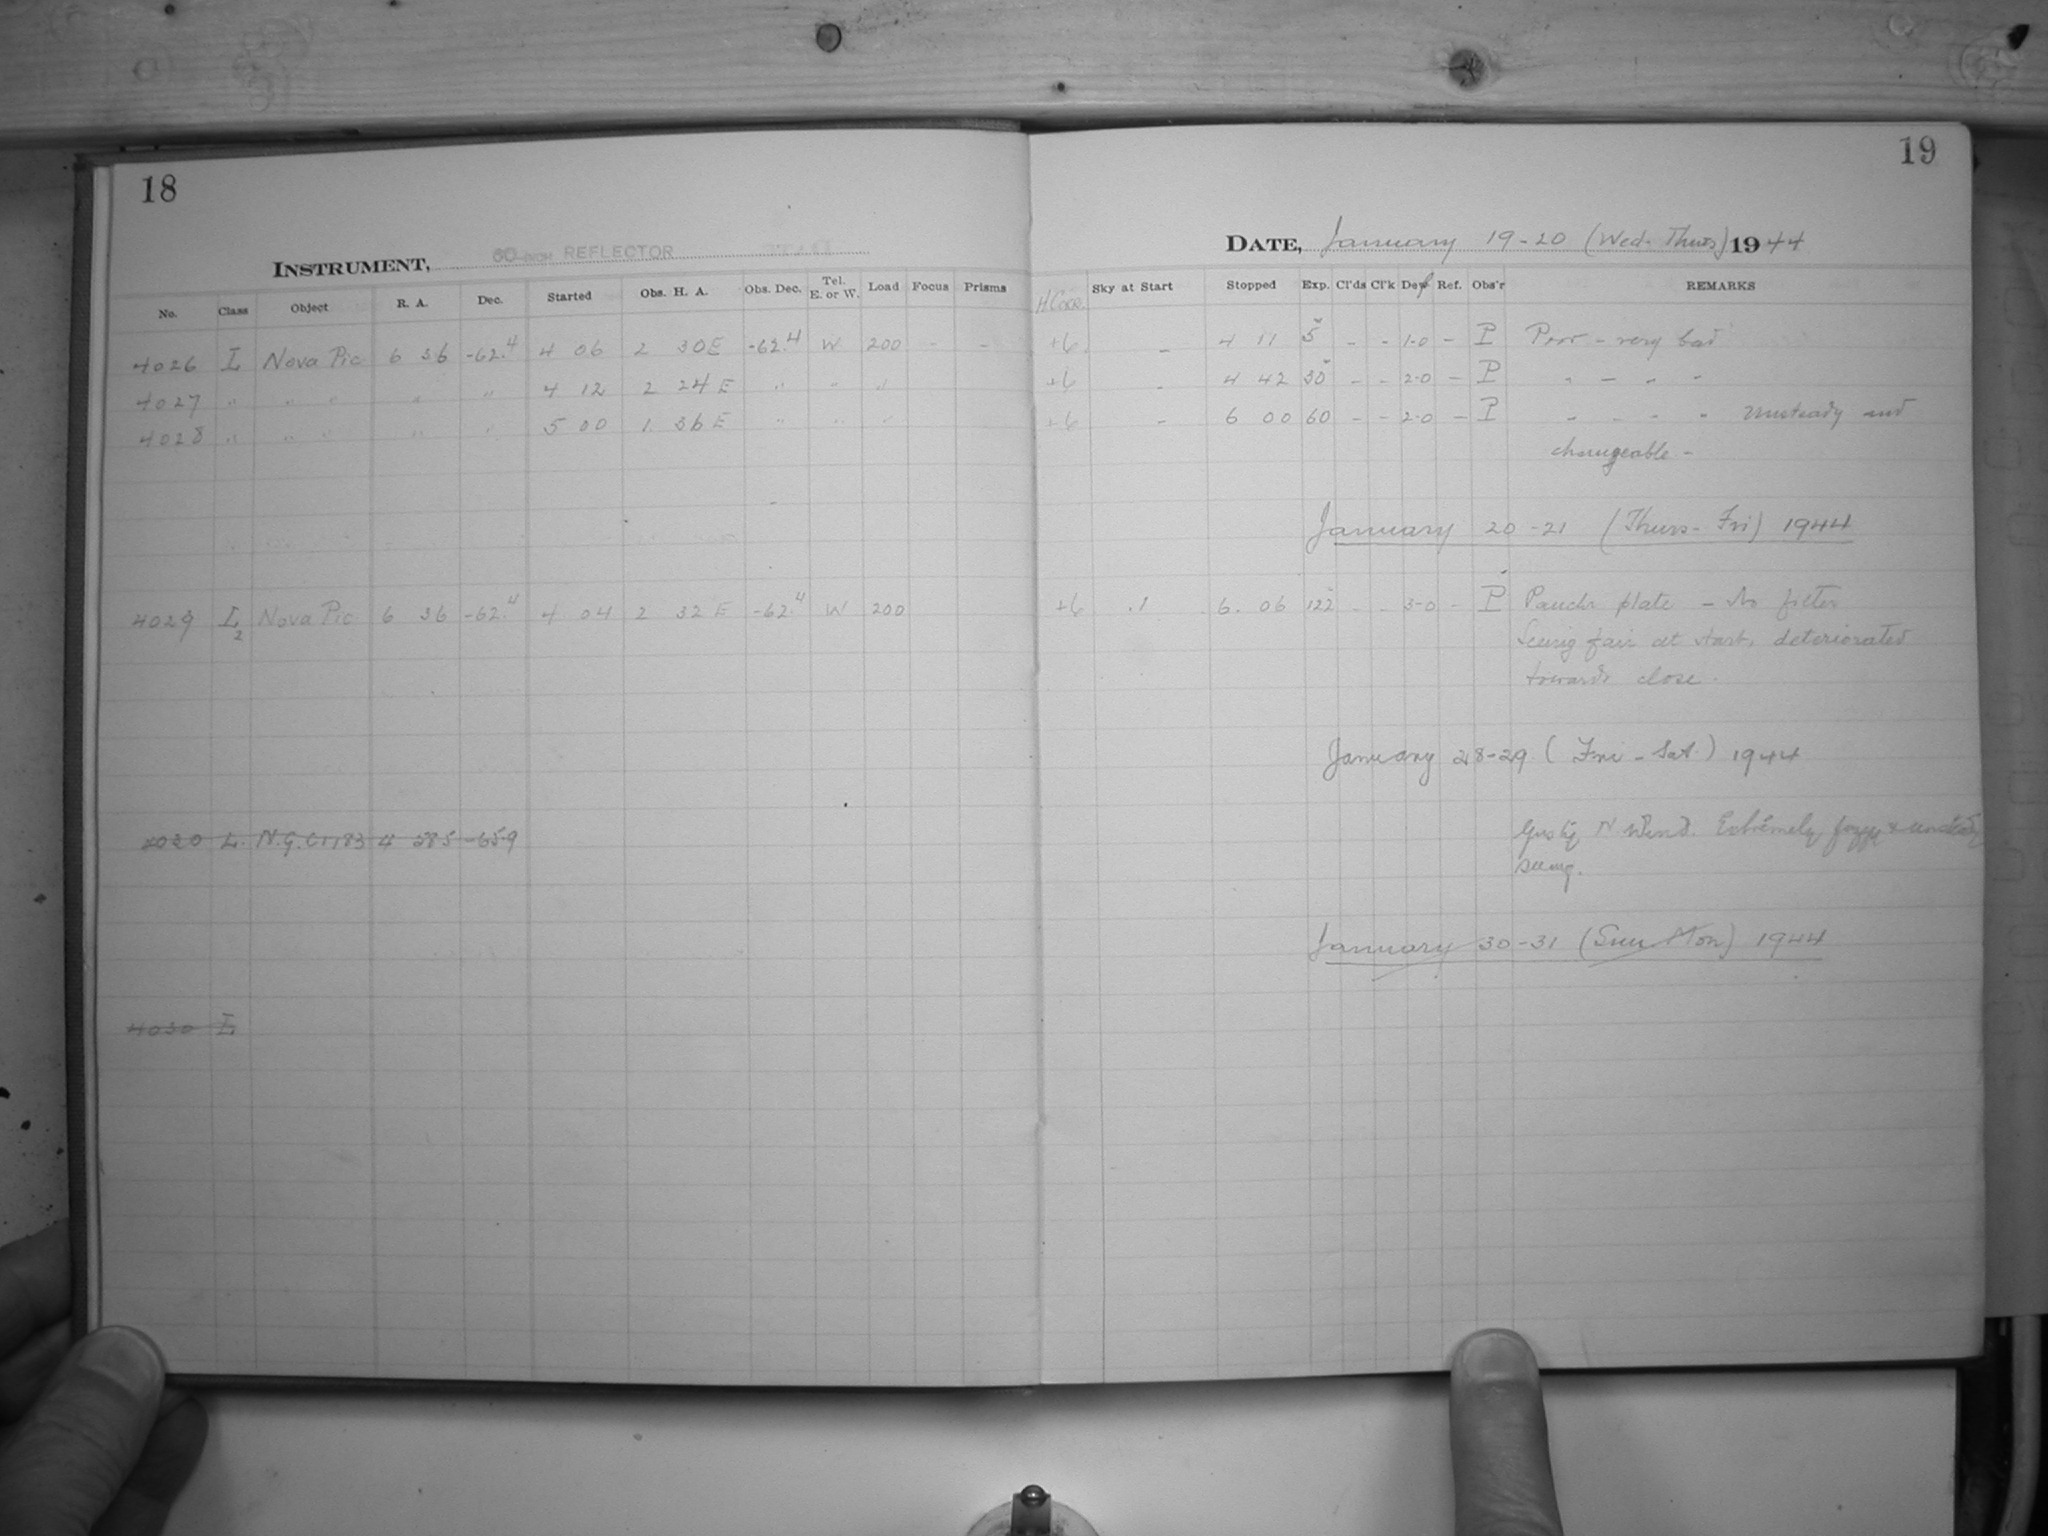 18
19
INSTRUMENT, 60-INCH REFLECTOR
DATE, January 19-20 (Wed-Thurs) 1944
No. Class Object R. A. Dec. Started Obs. H. A. Obs. Dec. Tel. E. or W. Load Focus Prisms H Corr. Sky at Start Stopped Exp. Cl'ds Cl'k Def Ref. Obs'r REMARKS
4026 L Nova Pic 6 36 -62.4 4 06 2 30E -62.4 W 200 - - +6 - 4 11 5 - - 1-0 - P Poor - very bad
4027 " " " " " 4 12 2 24E " " " +6 - 4 42 30 - - 2-0 - P " - " "
4028 " " " " " 5 00 1 36E " " " +6 - 6 00 60 - - 2-0 - P " - " " Unsteady and
changeable -
January 20-21 (Thurs-Fri) 1944
4029 L2 Nova Pic 6 36 -62.4 4 04 2 32E -62.4 W 200 +6 .1 6 06 122 - - 3-0 - P Panchr plate - No filter
Seeing fair at start, deteriorated
towards close.
January 28-29 (Fri-Sat) 1944
4030 L. N.G.C. 4 -65.9 Gusty N Wind. Extremely fuzzy & unsteady
seeing.
January 30-31 (Sun-Mon) 1944
4030 L